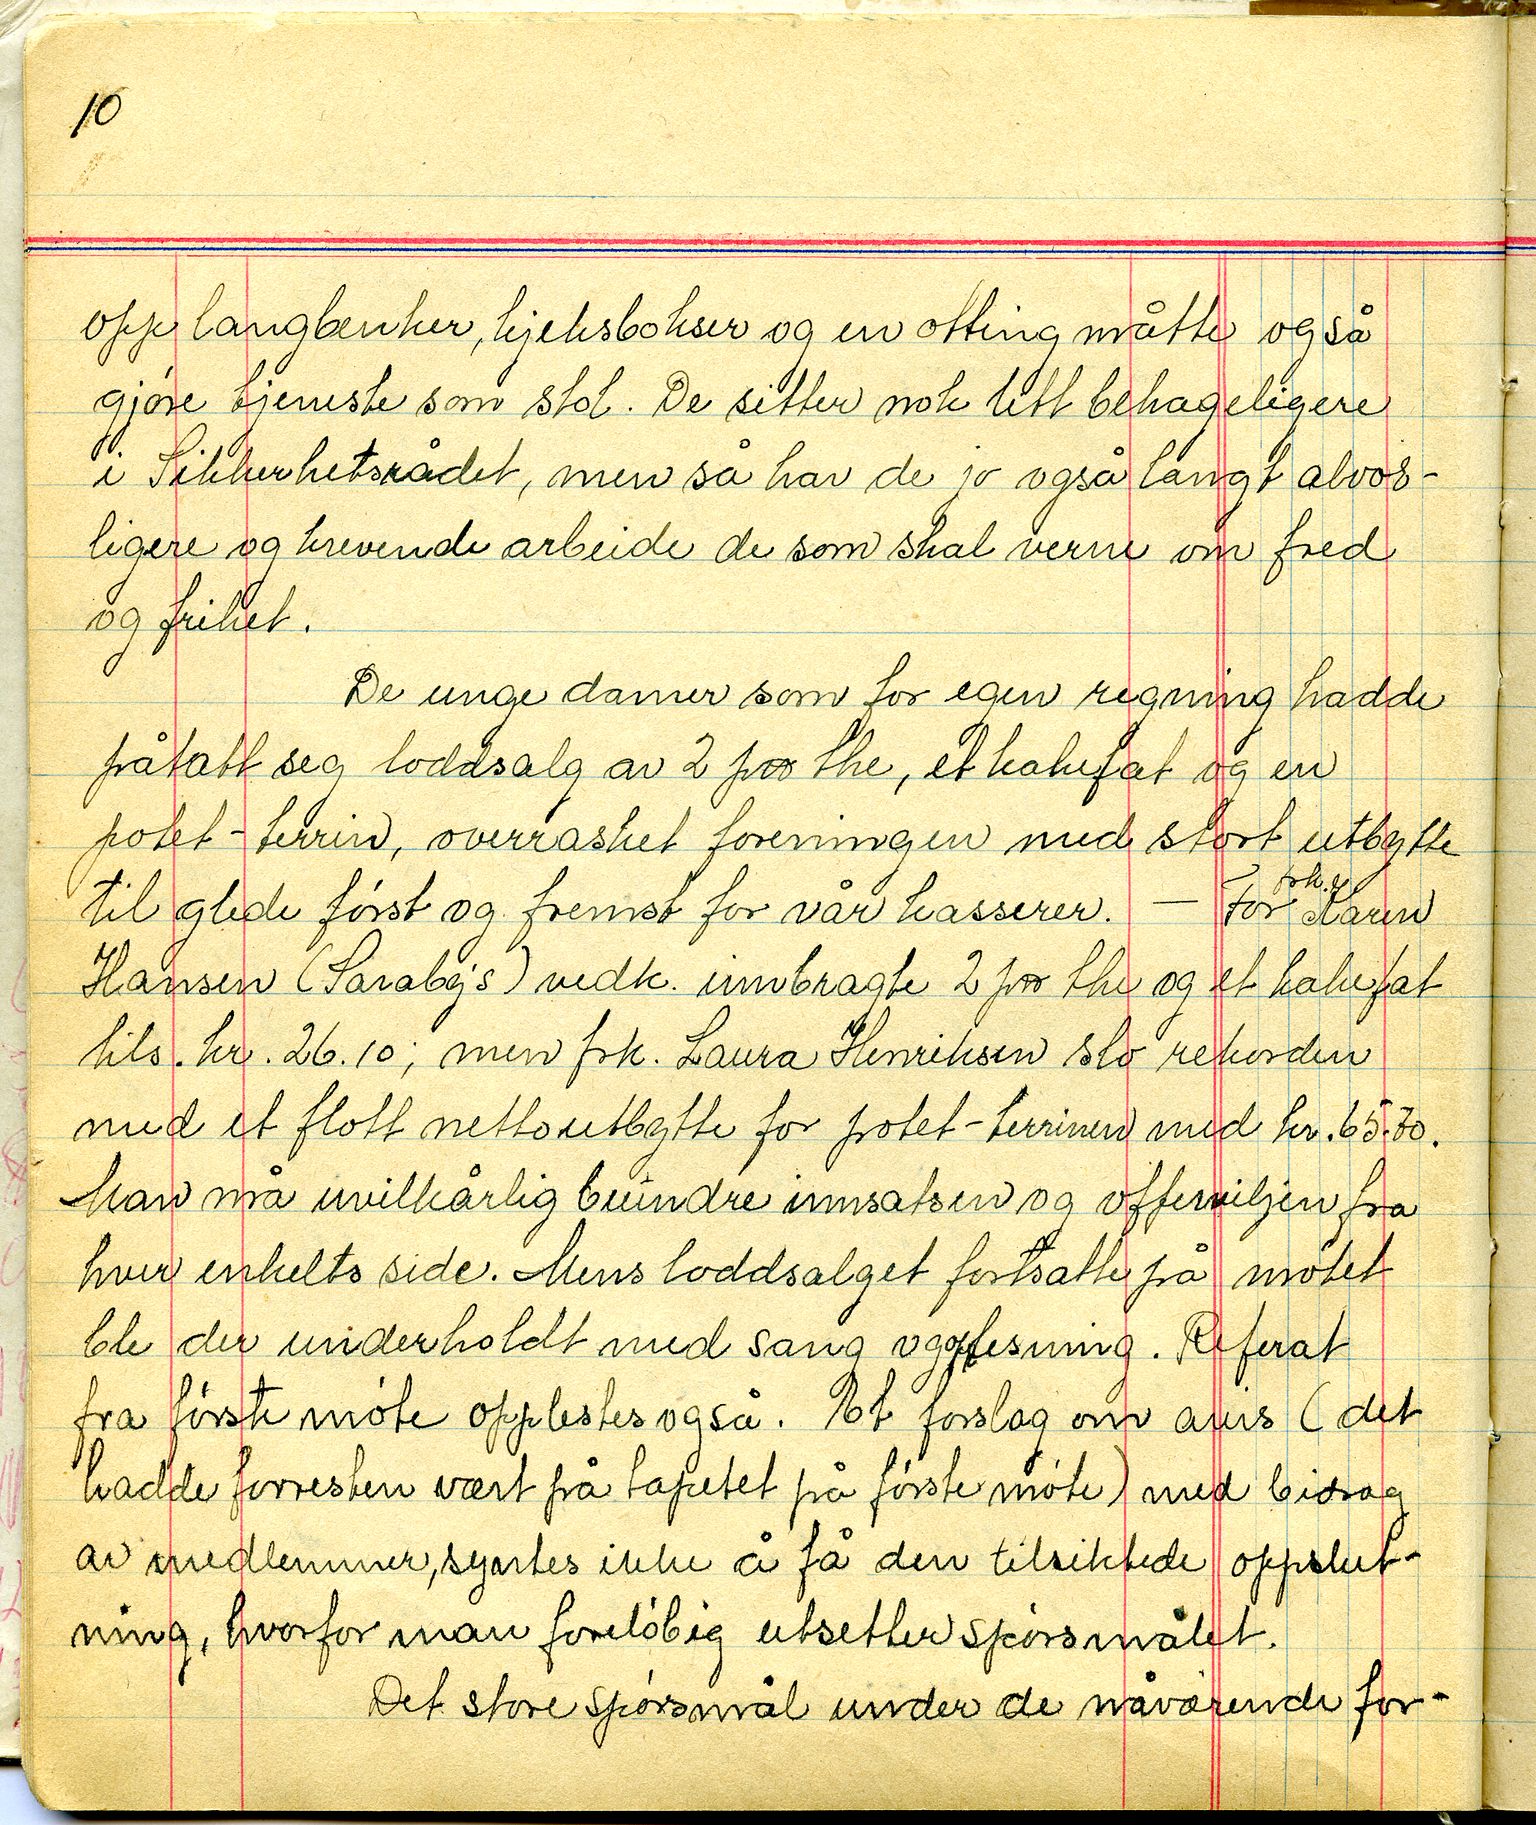 10
opp langbenker, kjeksbokser og en otting måtte også
gjøre tjeneste som stol. De sitter nok litt behageligere
i Sikkerhetsrådet, men så har de jo også langt alvor-
ligere og krevende arbeide de som skal verne om fred
og frihet.
De unge damer som for egen regning hadde
påtatt seg loddsalg av 2 par the, et kakefat og en
potet-terrin, overrasket foreningen med stort utbytte
til glede først og fremst for vår kasserer. — For frk. Karin
Hansen (Saraby's) vedk. innbragte 2 par the og et kakefat
tils. kr. 26.10; men frk. Laura Henriksen slo rekorden
med et flott nettoutbytte for potet-terrinen med kr. 65.70.
Man må uvilkårlig beundre innsatsen og offerviljen fra
hver enkelts side. Mens loddsalget fortsatte på møtet
ble der underholdt med sang og oplesning. Referat
fra første møte opplestes også. Et forslag om avis (det
hadde forresten vært på tapetet på første møte) med bidrag
av medlemmer, syntes ikke å få den tilsiktede oppslut-
ning, hvorfor man foreløbig utsetter spørsmålet.
Det store spørsmål under de nåværende for-